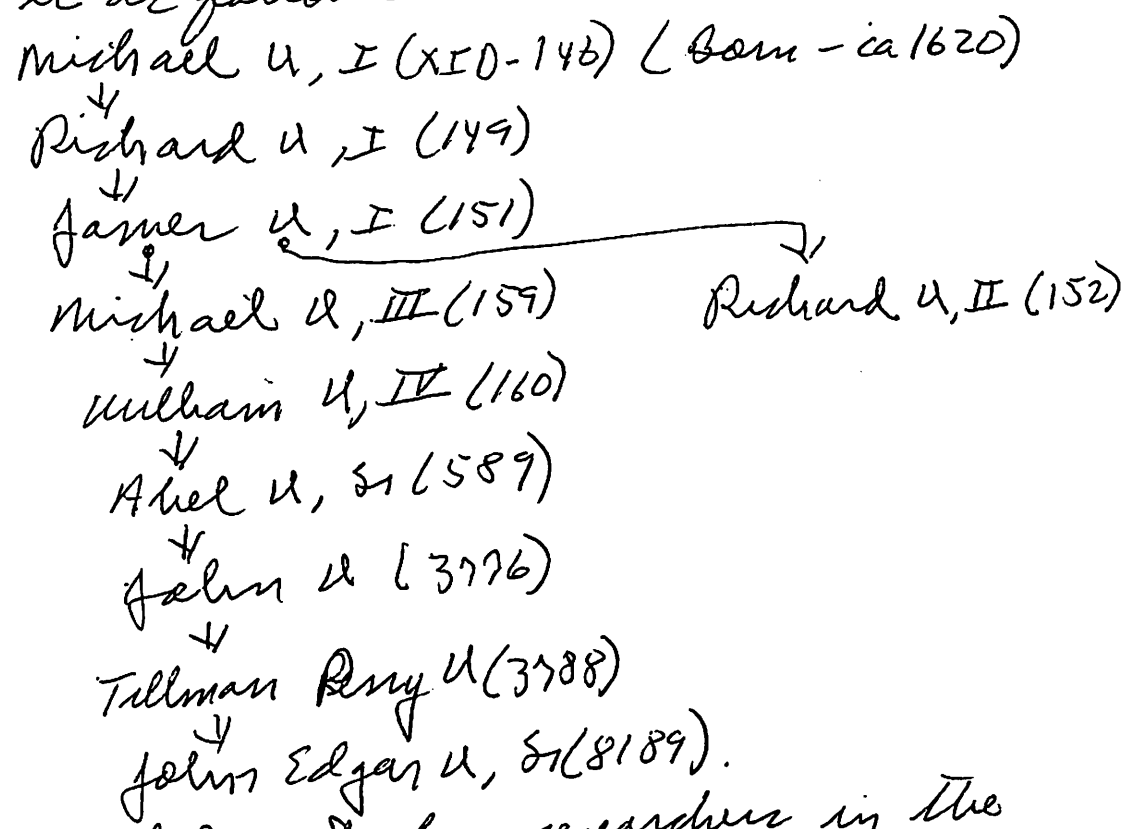 it is follows
Michael U, I (XID-146) (Born - ca 1620)
Richard U, I (149)
James U, I (151)
Michael U, III (159) Richard U, II (152)
William U, IV (160)
Abel U, Sr (589)
John U (3776)
Tillman Perry U (3788)
John Edgar U, Sr (8189).
researchers in the